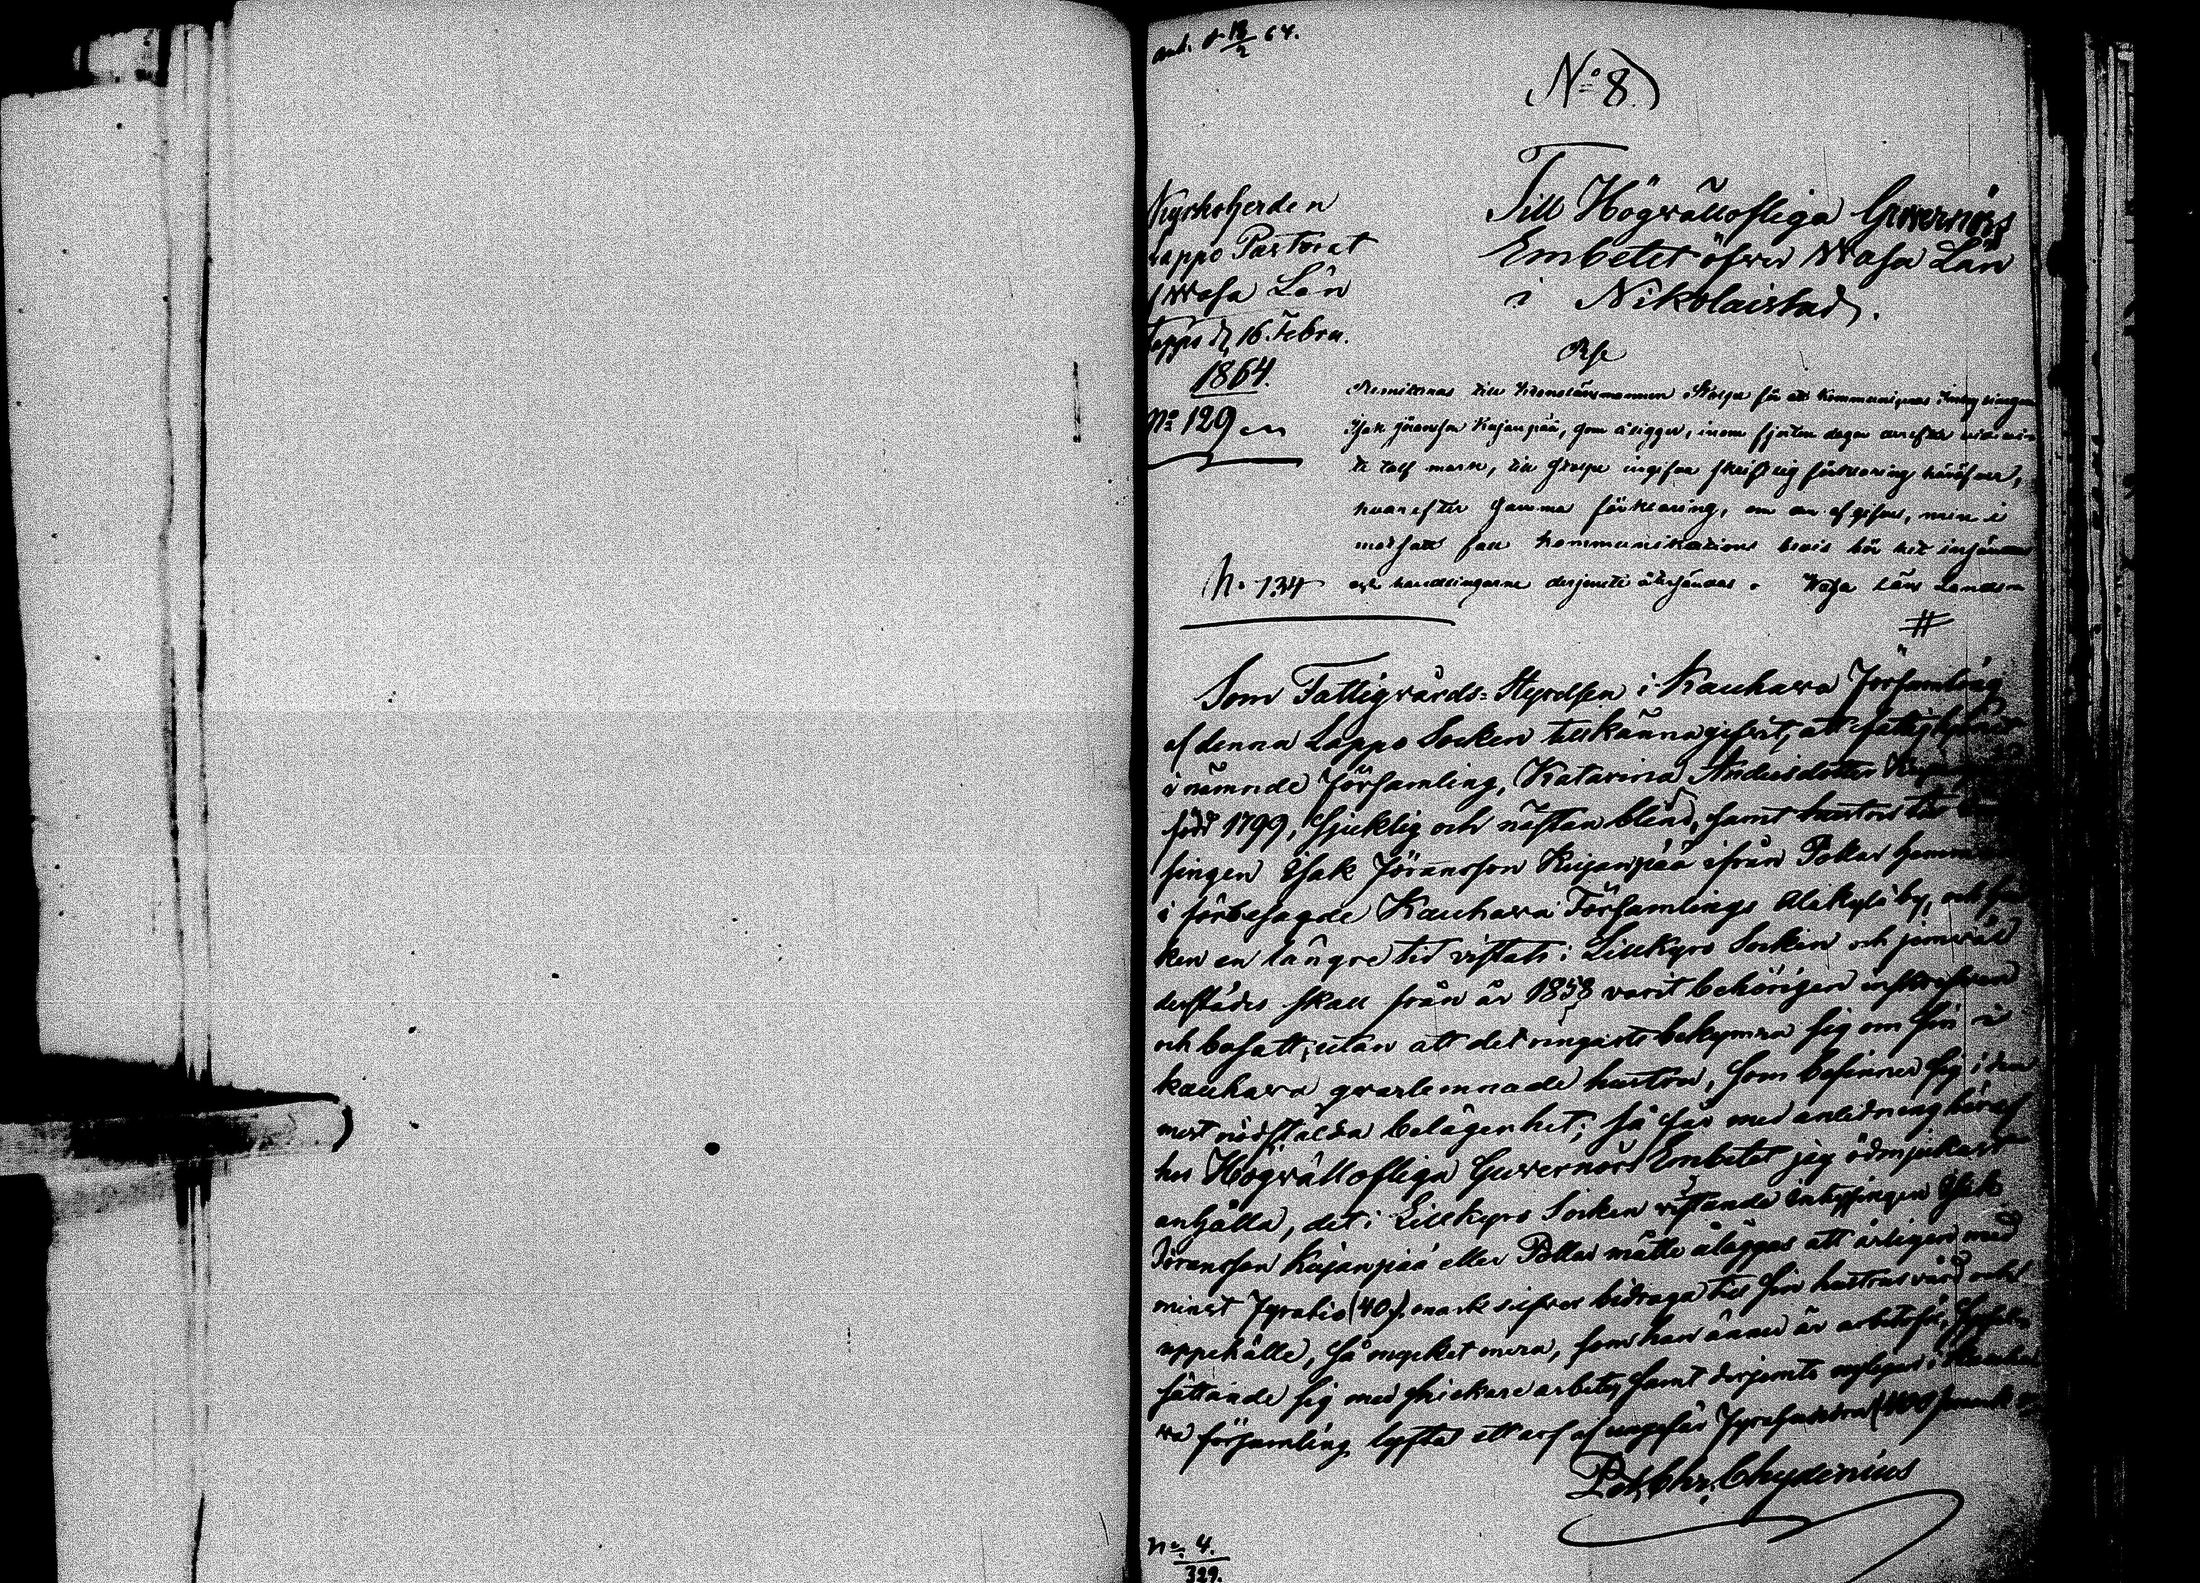 ank. d 18/2 64.
No 8.)
Kyrkoherden
Lappo Pastorat
i Wasa Län
Lappo d. 16 Febru.
1864.
No 129
Till Högvällofliga Guvernörs
Embetet öfver Wasa Län
i Nikolaistad.
Rse
Remitteras till Kronolänsmannen Stolpe för att kommuniceras Inhysingen
Isak Göransson Kujanpää, som åligger, inom fjorton dagar derefter vid
tolf mark, till Stolpe ingifva skriftlig förklaring häröfver,
hvarefter samma förklaring, om en afgifves, men i
motsatt fall kommunikations bevis bör hit insändas
och handlingarne derjemte återsändas. Wasa Läns Landsk
N. 134
#
Som Fattigvårds-Styrelsen i Kauhava Församling
af denna Lappo Socken tillkännagifvit, att fattighjonet
i nämnde församling, Katarina Andersdotter
född 1799, sjuklig och nästan blind, samt hustru till
singen Isak Jöransson Kujanpää ifrån Pollar hemman
i förbesagde Kauhava Församlings Alakylä by, och
ken en längre tid vistats i Lillkyro Socken och jemväl
derstädes skall från år 1858 varit behörigen inskrifven
och bosatt, utan att det ringaste bekymra sig om sin i
Kauhava qvarlemnade hustru, som befinner sig i den
mest nödstälda belägenhet; så får med anledning häraf
hos Högvällofliga Guvernörs Embetet jeg ödmjukast
anhålla, det i Lillkyro Socken vistande Inhysingen Isak
Jöransson Kujanpää eller Pollar måtte åläggas att årligen med
minst Fyratio (40) mark silfver bidraga till sin hustrus vård och
uppehälle, så mycket mera, som han ännu är arbetsför,
sättande sig med snickare arbete, samt derjemte nyligen i Kauha
va församling lyfta ett arf af ungefär Fyrahundra (400) mark
Pet. Chr. Chydenius
No. 4.
329.